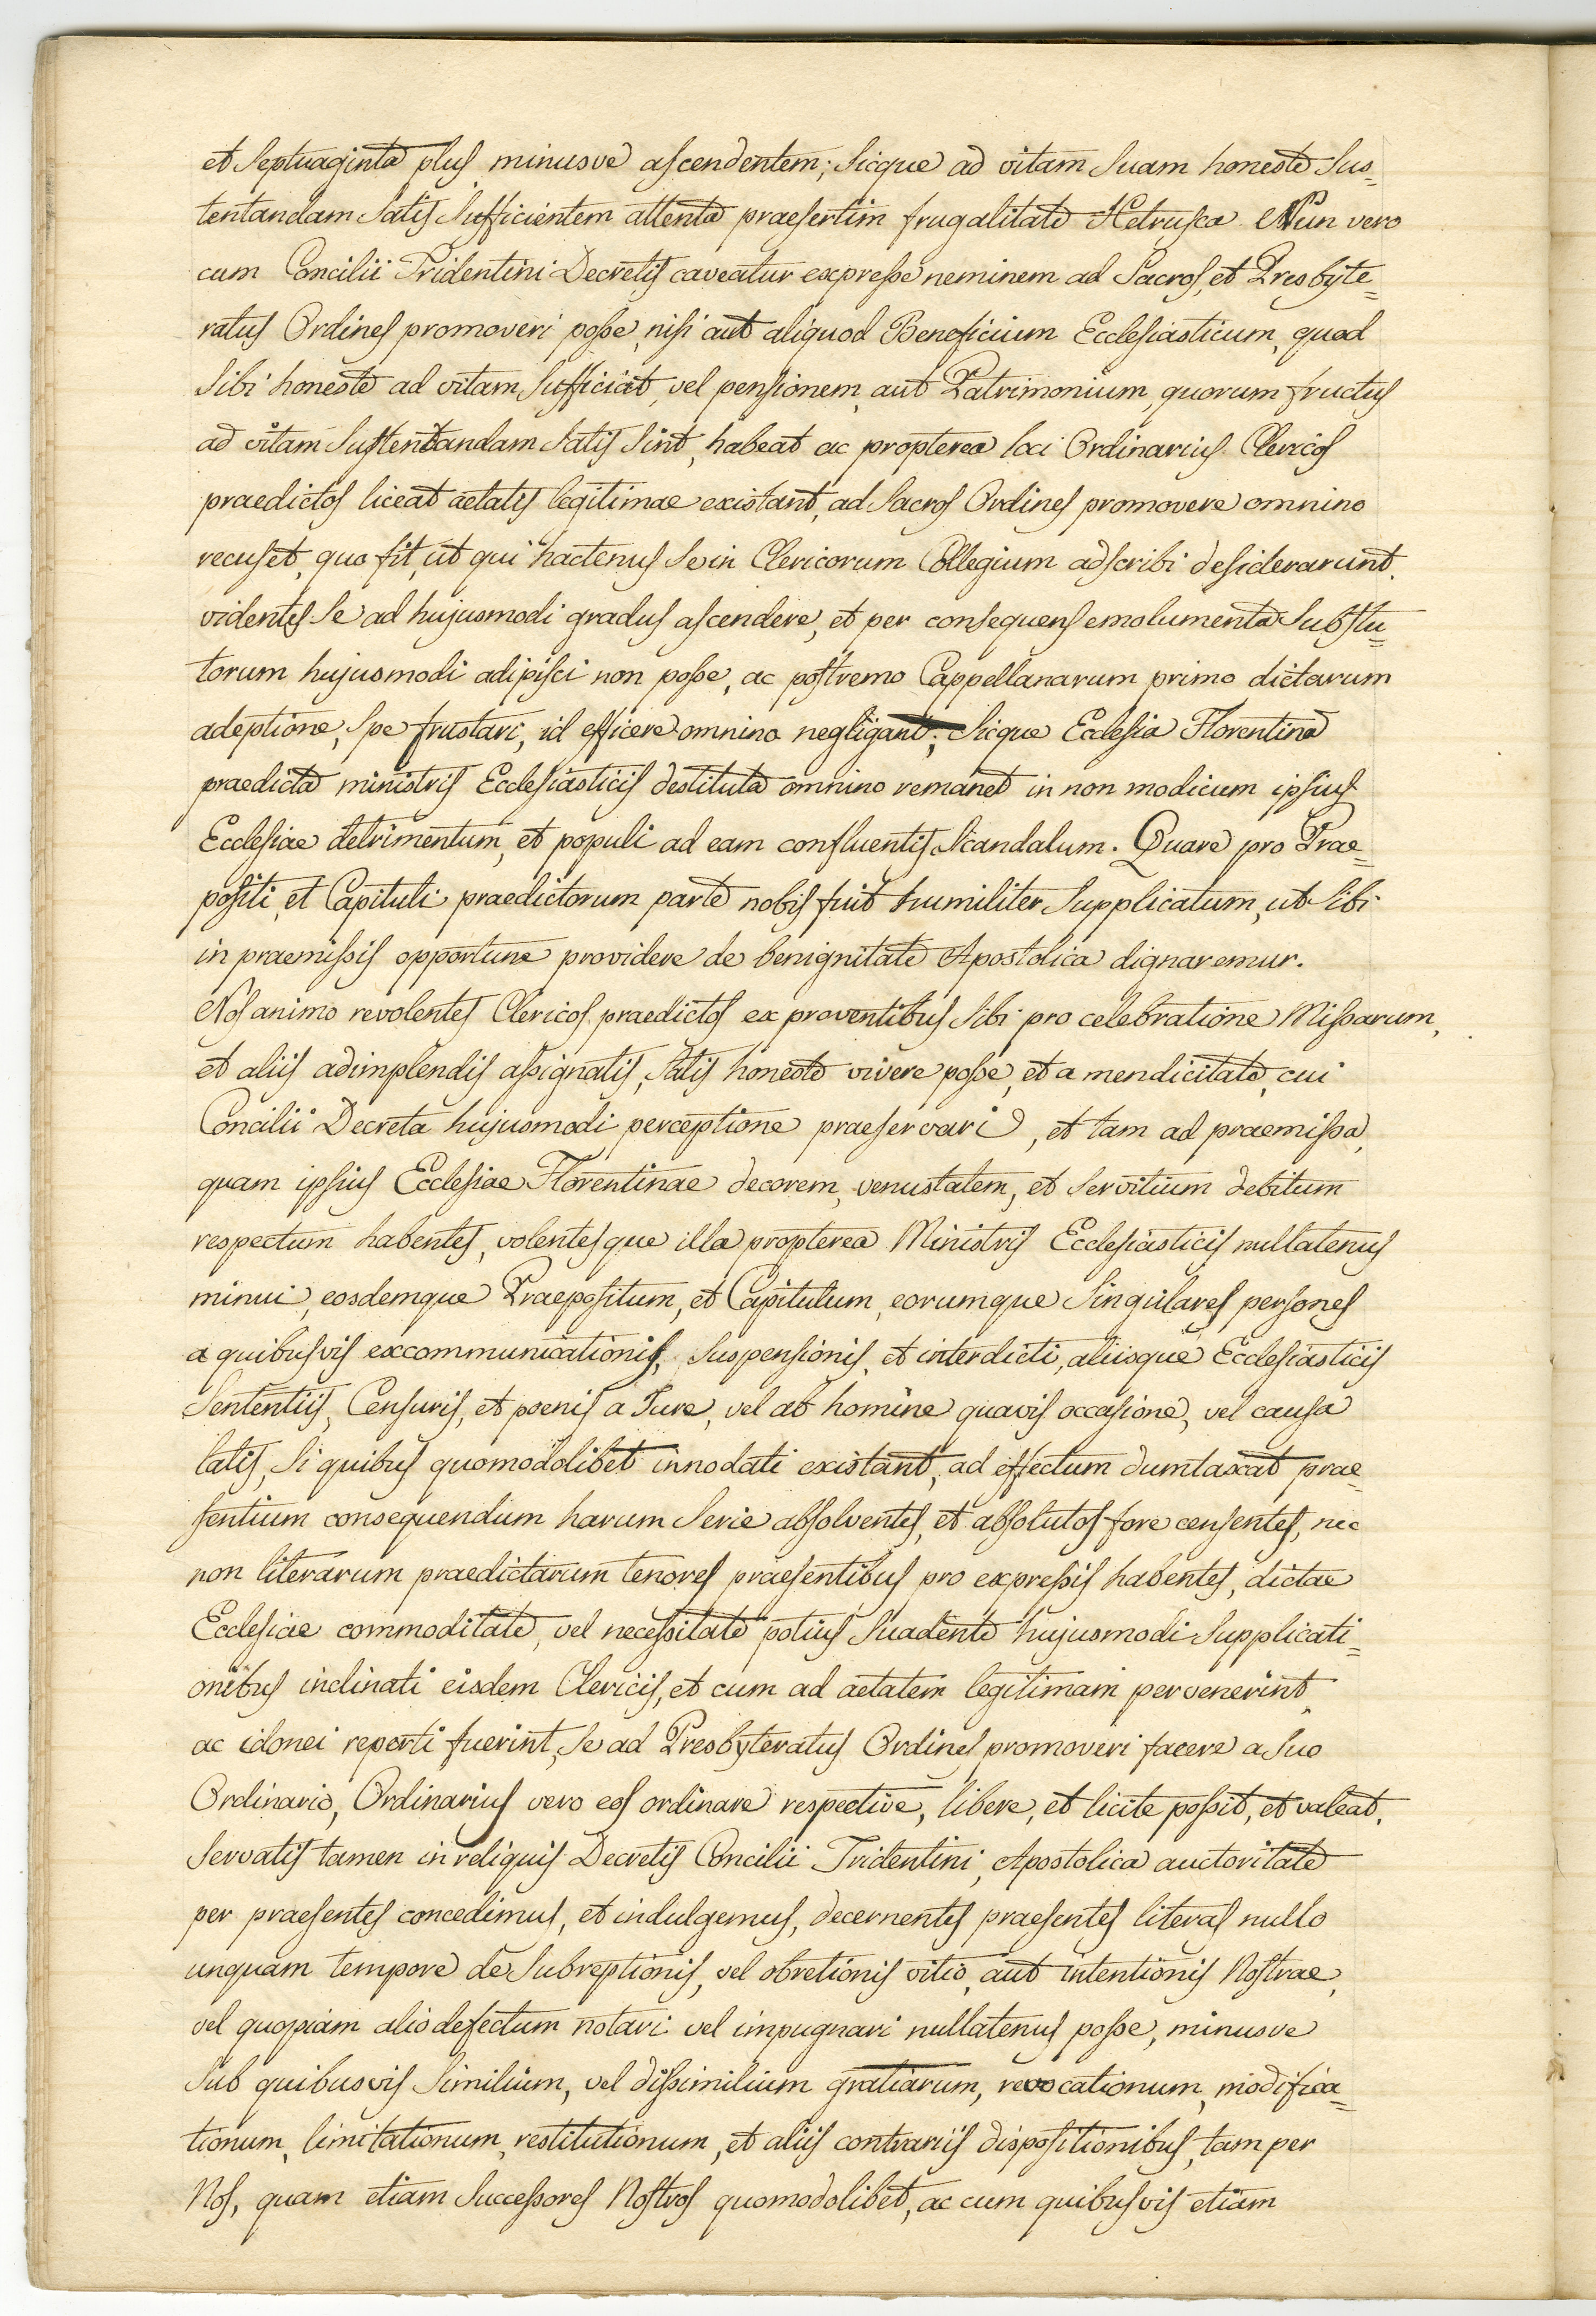 et Septuaginta plus minusve ascendentem; Sicque ad vitam Suam honeste Sus=
tentandam Satis Sufficientem attenta praesertim frugalitate Hetrusca. Nun vero
cum Concilii Tridentini Decretis caveatur expresse neminem ad Sacros, et Presbyte=
ratus Ordines promoveri posse, nisi aut aliquod Beneficium Ecclesiasticum, quod
Sibi honeste ad vitam Sufficiat, vel pensionem, aut Patrimonium, quorum fructus
ad vitam Sustentandam Satis Sint, habeat ac propterea loci Ordinarius Clericos
praedictos liceat aetatis legitimae existant, ad Sacros Ordines promovere omnino
recuset, quo fit, ut qui hactenus Se in Clericorum Collegium adscribi desiderarunt,
videntes Se ad hujusmodi gradus ascendere, et per consequens emolumenta Substu=
torum hujusmodi adipisci non posse, ac postremo Cappellanarum primo dictarum
adeptione, Spe frustari, id efficere omnino negligant; Sicque Ecclesia Florentina
praedicta ministris Ecclesiasticis destituta omnino remanet in non modicum ipsius
Ecclesiae detrimentum, et populi ad eam confluentis Scandalum. Quare pro Prae=
positi, et Capituli praedictorum parte nobis fuit humiliter Supplicatum, ut Sibi
in praemissis opportune providere de benignitate Apostolica dignaremur.
Nos animo revolentes Clericos praedictos ex proventibus Sibi pro celebratione Missarum,
et aliis adimplendis assignatis, Satis honeste vivere posse, et a mendicitate, cui
Concilii Decreta hujusmodi perceptione praeservari, et tam ad praemissa,
quam ipsius Ecclesiae Florentinae decorem, venustatem, et Servitium debitum
respectum habentes, volentesque illa propterea Ministris Ecclesiasticis nullatenus
minui, eosdemque Praepositum, et Capitulum, eorumque Singulares persones
a quibusvis excommunicationis, Suspensionis, et interdicti, aliisque Ecclesiasticis
Sententiis, Censuris, et poenis a Jure, vel ab homine quavis occasione, vel causa
latis, Si quibus quomodolibet innodati existant, ad effectum dumtaxat prae=
sentium consequendum harum Serie absolventes, et absolutos fore censentes, nec
non literarum praedictarum tenores praesentibus pro expressis habentes, dictae
Ecclesiae commoditate, vel necessitate potius Suadente hujusmodi Supplicati=
onibus inclinati eisdem Clericis, et cum ad aetatem legitimam pervenerint,
ac idonei reperti fuerint, Se ad Presbyteratus Ordines promoveri facere a Suo
Ordinario, Ordinarius vero eos ordinare respective, libere, et licite possit, et valeat,
Servatis tamen in reliquis Decretis Concilii Tridentini, Apostolica auctoritate
per praesentes concedimus, et indulgemus, decernentes praesentes literas nullo
unquam tempore de Subreptionis, vel obretionis vitio, aut intentionis Nostrae,
vel quopiam alio defectum notari vel impugnari nullatenus posse, minusve
Sub quibusvis Similium, vel dissimilium gratiarum, revocationum, modifica=
tionum, limitationum, restitutionum, et aliis contrariis dispositionibus, tam per
Nos, quam etiam Successores Nostros quomodolibet, ac cum quibusvis etiam